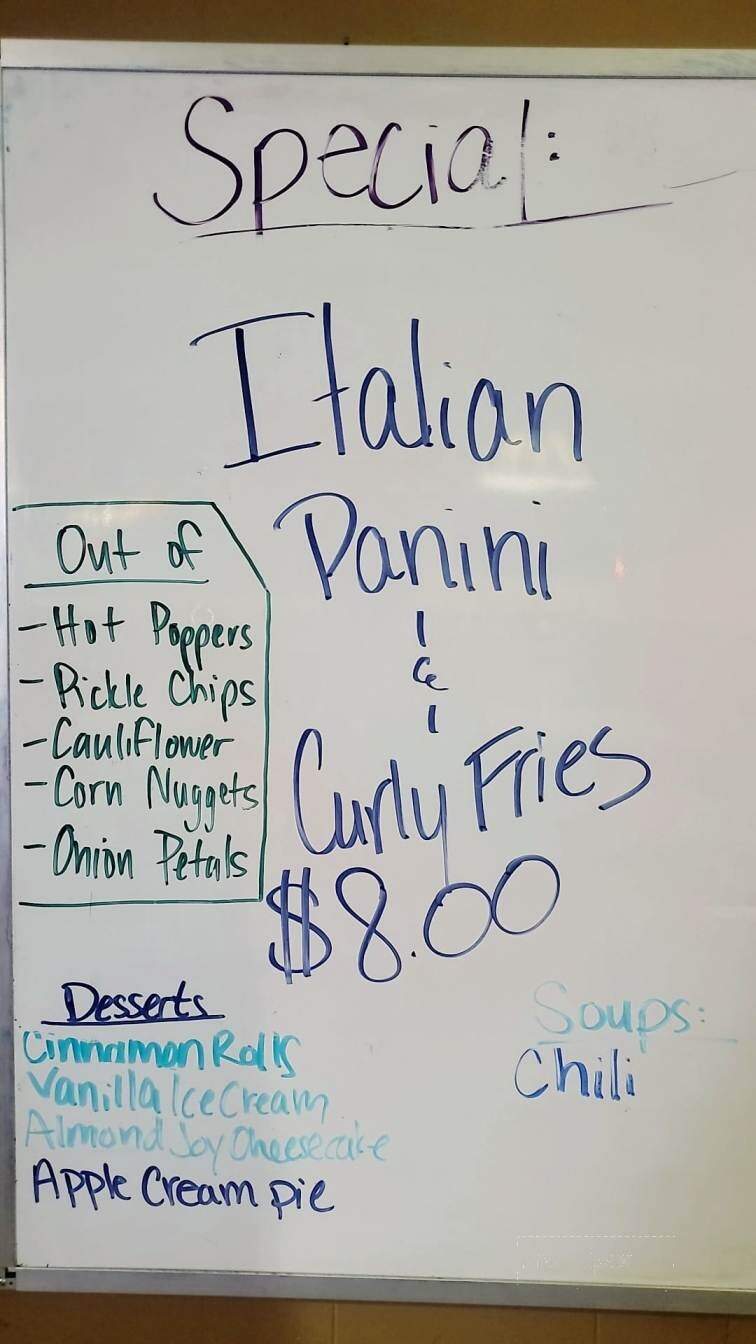 Special:
Italian
Panini
&
Curly Fries
$8.00
Out of
- Hot Poppers
- Pickle Chips
- Cauliflower
- Corn Nuggets
- Onion Petals
Desserts
Cinnamon Rolls
Vanilla Ice Cream
Almond Joy Cheesecake
Apple Cream pie
Soups:
Chili